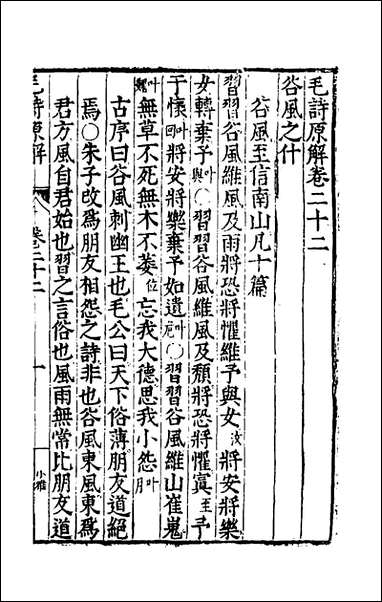 毛詩原解卷二十二
谷風之什
谷風至信南山凡十篇
習習谷風維風及雨將恐將懼維予與女汝將安將樂
女轉棄予叶與○習習谷風維風及頹將恐將懼寘至予
于懷叶回將安將樂棄予如遺叶○習習谷風維山崔嵬
叶無草不死無木不萎叶位忘我大德思我小怨叶
古序曰谷風刺幽王也毛公曰天下俗薄朋友道絕
焉○朱子改爲朋友相怨之詩非也谷風東風東爲
君方風自君始也習之言俗也風雨無常比朋友道
毛詩原解
卷二十二
一
小雅